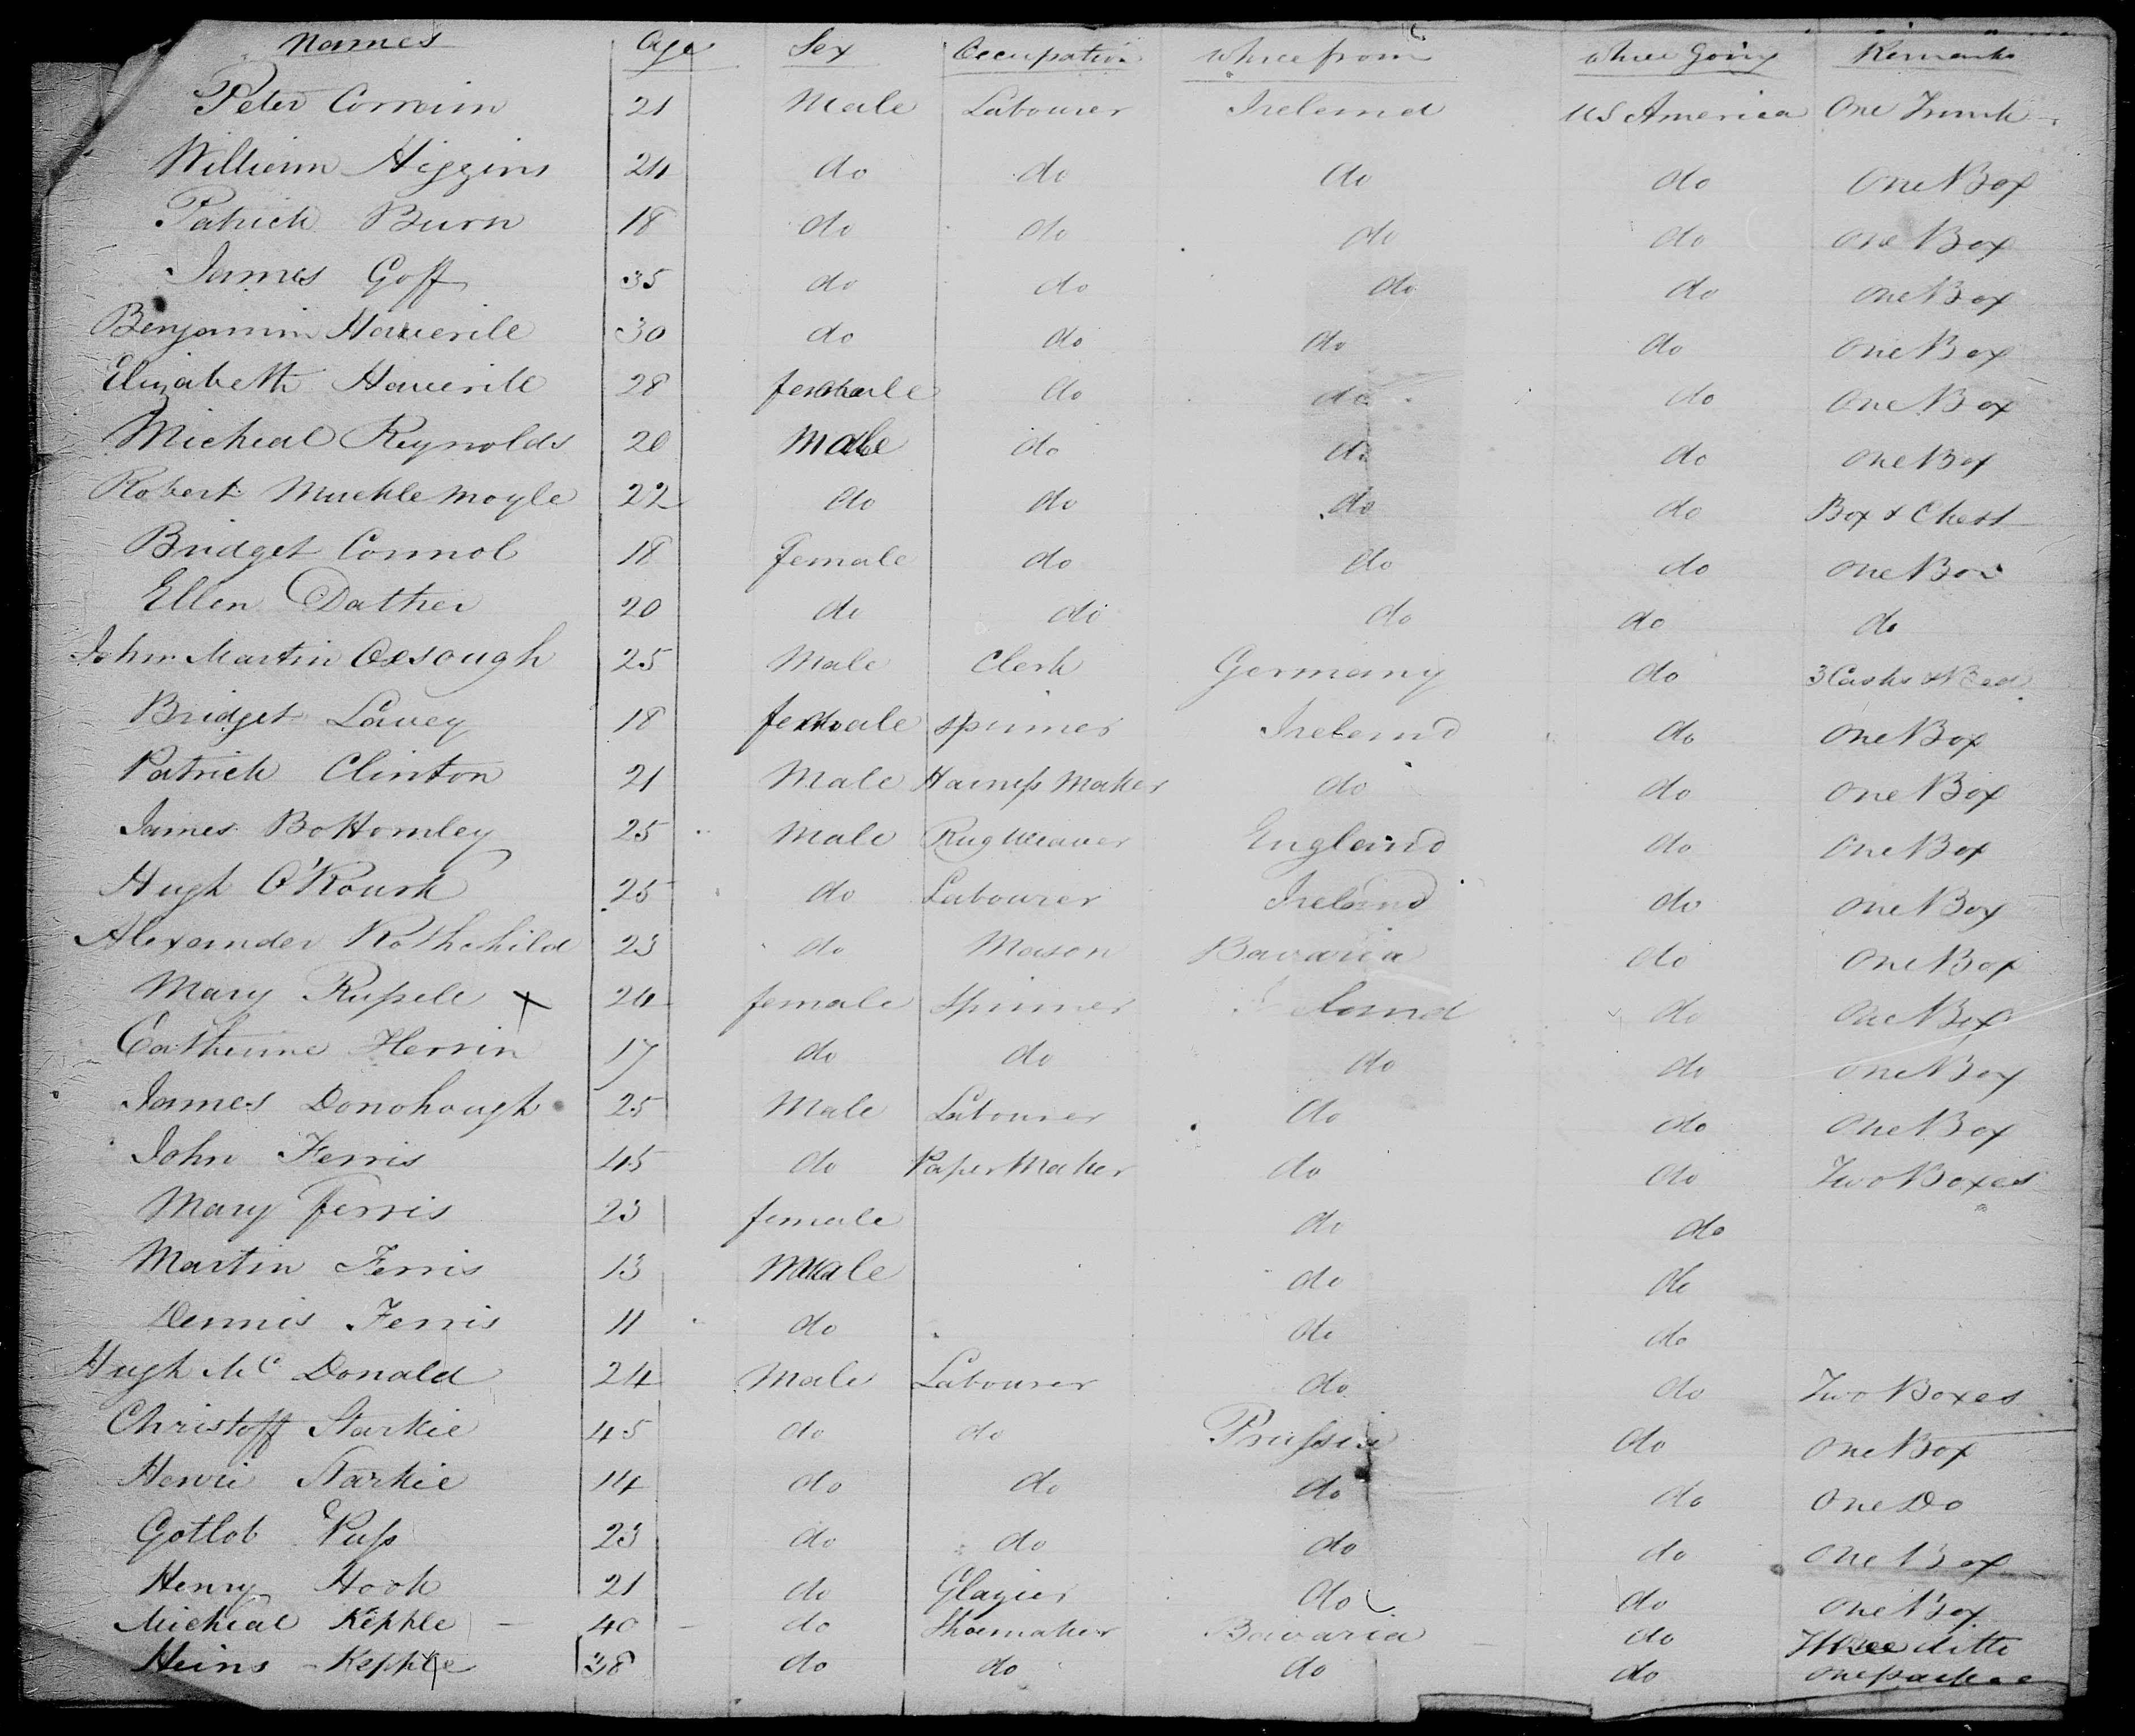 Names Age Sex Occupation Where from Where Going Remarks
Peter Corraim 21 Male Labourer Ireland US America One Trunk
William Higgins 24 do do do do One Box
Patrick Burn 18 do do do do One Box
James Goff 35 do do do do One Box
Benjamin Haverile 30 do do do do One Box
Elizabeth Haverile 28 female do do do One Box
Micheal Reynolds 20 Male do do do One Box
Robert Mucklemoyle 22 do do do do Box & Chest
Bridget Connol 18 female do do do One Box
Ellen Dather 20 do do do do do
John Martin 25 Male Clerk Germany do 3 Casks & Bed
Bridget Lavey 18 female spinner Ireland do One Box
Patrick Clinton 21 Male Harness Maker do do One Box
James Bottomley 25 Male Rug Weaver England do One Box
Hugh O'Rourk 25 do Labourer Ireland do One Box
Alexander Rothchild 23 do Mason Bavaria do One Box
Mary Russele x 24 female Spinner Ireland do One Box
Catherine Herrin 17 do do do do One Box
James Donohough 25 Male Labourer do do One Box
John Ferris 45 do Paper Maker do do Two Boxes
Mary Ferris 23 female do do
Martin Ferris 13 Male do do
Dennis Ferris 11 do do do
Hugh Mc Donald 24 Male Labourer do do Two Boxes
Christoff Starkie 45 do do Prussia do One Box
Henri Starkie 14 do do do do One Do
Gotlob Puss 23 do do do do One Box
Henry Hook 21 do Glazier do do One Box
Micheal Kepple 40 do Shoemaker Bavaria do Three ditto
Heins Kepple 38 do do do do One package